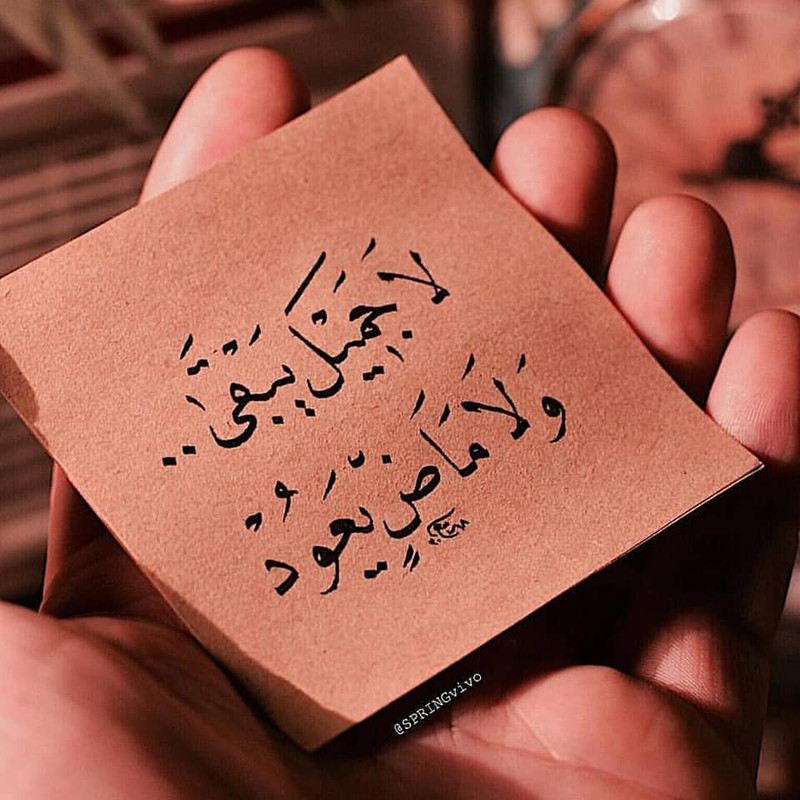 لَا جَمِيْلَ يَبْقَى..
وَلَا مَاضٍ يَّعُوْدُ
@SPRINGvivo